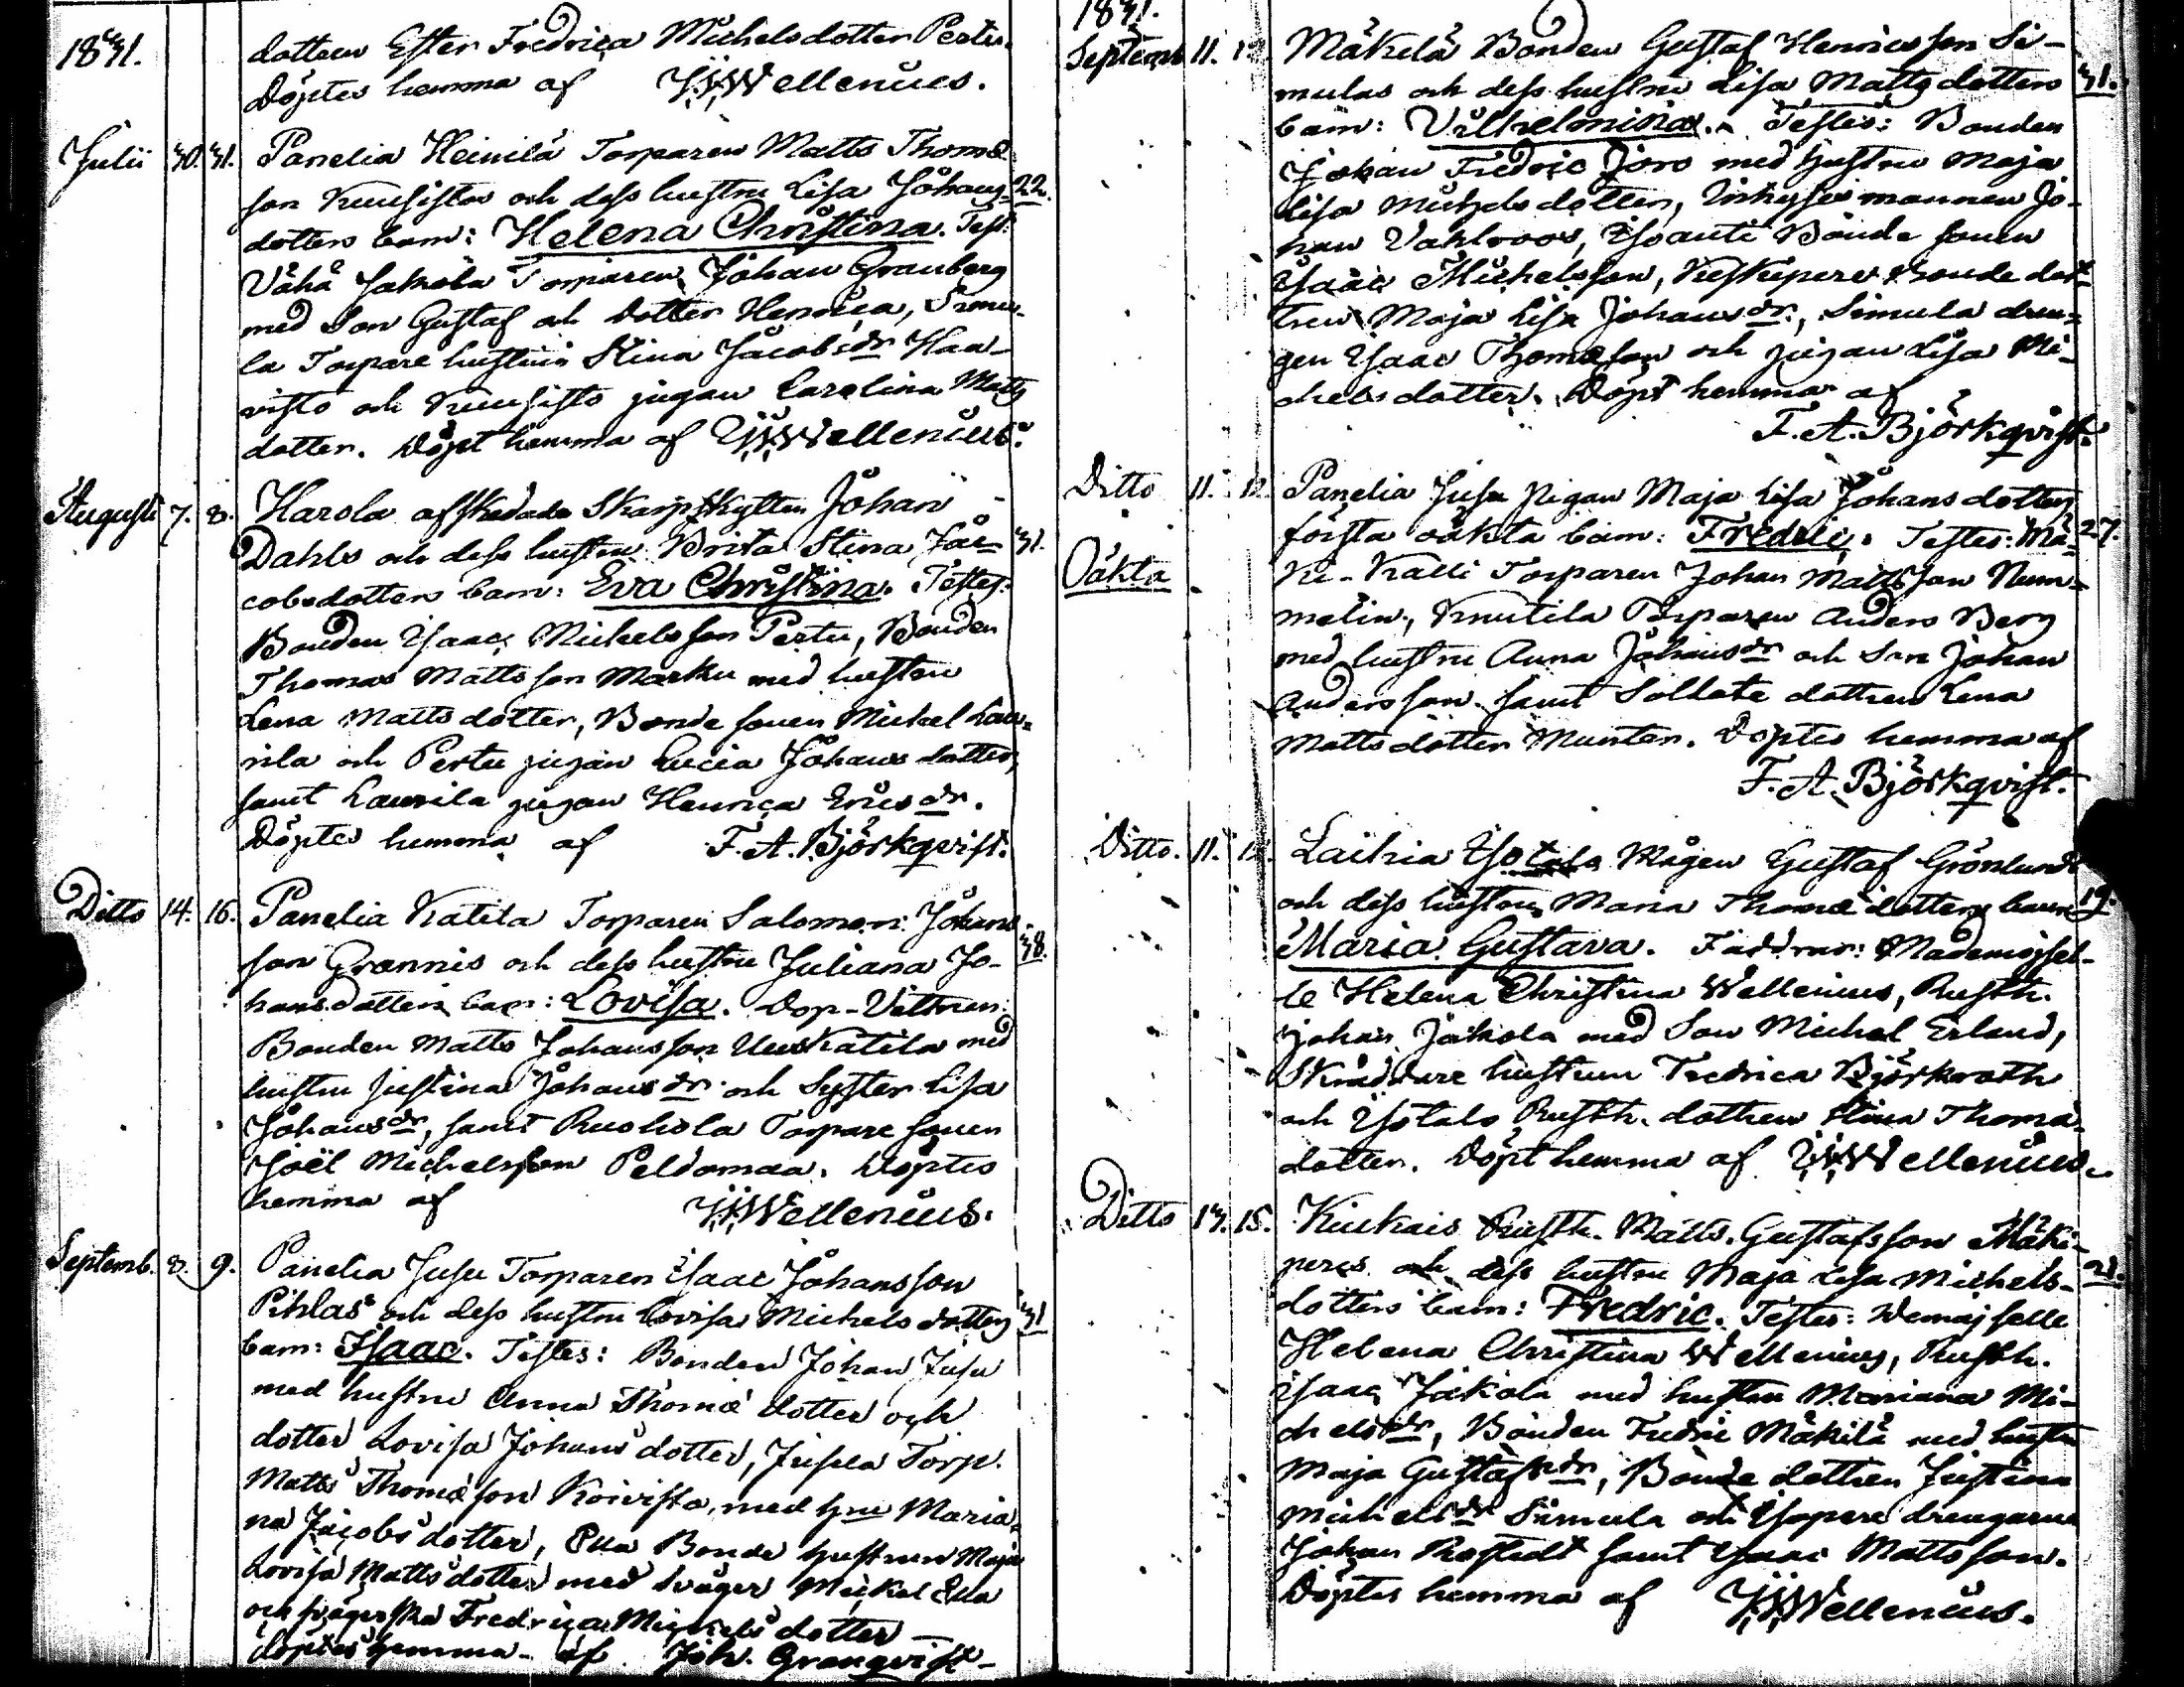 1831.
dottren Ester Fredrica Michelsdotter Pertu.
Döptes hemma af J. W. Wellenius.
Julii 30. 31. Panelia Heinilä Torparen Matts Thomæ
son Kuusistos och dess hustru Lisa Johans- 22.
dotters barn: Helena Christina. Test:
Vähä Jakola Torparen Johan Granberg
med Son Gustaf och dotter Henrica, Simu-
la Torpare hustrun Stina Jacobsdr Haa-
visto och Kuusisto pigan Carolina Matts
dotter. Döpt hemma af J. W. Wellenius.
Augusti 7. 8. Harola afskedade Skarpskytten Johan
Dahls och dess hustru Brita Stina Ja- 31.
cobsdotters barn: Eva Christina. Testes:
Bonden Isaac Michelsson Pertu, Bonden
Thomas Mattsson Marku med hustru
Lena Mattsdotter, Bonde sonen Michel Lau-
rila och Pertu pigan Lucia Johansdotter,
samt Laurila pigan Henrica Ericsdr.
Döptes hemma af F. A. Björkqvist.
Ditto 14. 16. Panelia Katila Torparen Salomon Johans
son Grannis och dess hustru Juliana Jo- 38.
hansdotters barn: Lovisa. Dop-Vittnen:
Bonden Matts Johansson Uuskatila med
hustru Justina Johansdr och Syster Lisa
Johansdr, samt Ruohola Torpare sonen
Joël Michelsson Peldomaa. Döptes
hemma af J. W. Wellenius.
Septemb. 8. 9. Panelia Jusu Torparen Isaac Johansson
Pihlas och dess hustru Lovisa Michelsdotters 31
barn: Isaac. Testes: Bonden Johan Jusu
med hustru Anna Thomædotter och
dotter Lovisa Johansdotter, Jusela Torp.
Matts Thomæson Koivisto, med hru Maria-
na Jacobsdotter, Eka Bonde hustrun Maja
Lovisa Mattsdotter med Svåger Mickel Eka
och svägerska Fredrica Mickelsdotter
döptes hemma af Joh. Granqvist
1831.
Septemb. 11. 12. Mäkelä Bonden Gustaf Henricsson Si-
mulas och dess hustru Lisa Mattsdotters 31.
barn: Vilhelmina. Testes: Bonden
Johan Fredric Joro med hustru Maja
Lisa Michelsdotter, Inhyses mannen Jo-
han Vahlroos, Isoanti Bonde sonen
Isaac Michelsson, Keskipere Bonde dot-
tren Maja Lisa Johansdr, Simula dren-
gen Isaac Thomæson och pigan Lisa Mi-
chelsdotter. Döpt hemma af
F. A. Björkqvist.
Ditto 11. 12. Panelia Jusu Pigan Maja Lisa Johansdotters
Oäkta första oäkta barn: Fredric. Testes: Mä- 27.
ki-Kalli Torparen Johan Mattsson Num-
melin, Knutila Torparen Anders Berg
med hustru Anna Johansdr och Son Johan
Andersson samt Soldate dottren Lena
Mattsdotter Munter. Döptes hemma af
F. A. Björkqvist.
Ditto. 11. 12. Laihia Isotalo Mågen Gustaf Grönlunds
och dess hustrus Maria Thomædotters barn 19.
Maria Gustava. Faddrar: Mademoisel-
le Helena Christina Wellenius, Rusth.
Johan Jakola med Son Michel Erland,
Skräddare hustrun Fredrica Björkroth
och Isotalo Rusth. dottren Stina Thomæ-
dotter. Döpt hemma af J. W. Wellenius.
Ditto 13. 15. Kiukais Rusth. Matts Gustafsson Mäki-
peres och dess hustru Maja Lisa Michels- 21.
dotters barn: Fredric. Testes: Demoiselle
Helena Christina Wellenius, Rusth.
Isaac Jakola med hustru Mariana Mi-
chelsdr, Bonden Fredric Mäkilä med hustru
Maja Gustafsdr, Bonde dottren Justina
Michelsdr Simula och Isopere drengarne
Johan Rostedt samt Isaac Mattsson.
Döptes hemma af J. W. Wellenius.